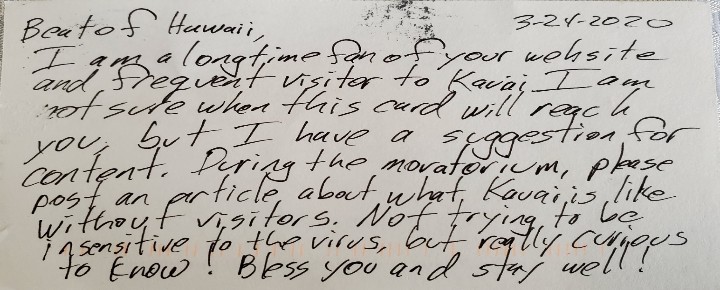 Beat of Hawaii, 3-24-2020
I am a longtime fan of your website
and frequent visitor to Kauai. I am
not sure when this card will reach
you, but I have a suggestion for
content. During the moratorium, please
post an article about what Kauai is like
without visitors. Not trying to be
insensitive to the virus, but really curious
to know! Bless you and stay well!